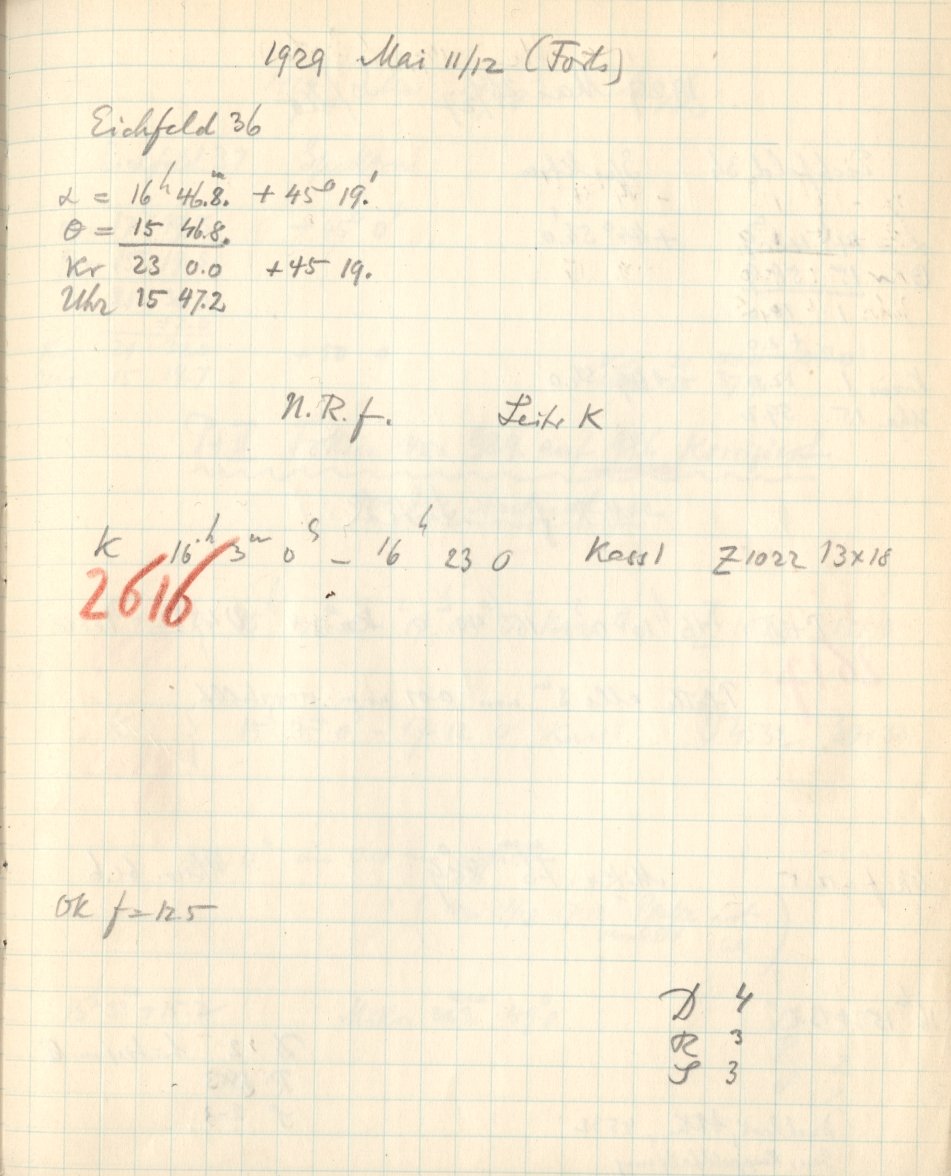 1929 Mai 11/12 (Forts)
Eichfeld 36
α = 16h 46.8m. + 45° 19.'
θ = 15 46.8.
Kr 23 0.0 +45 19.
Uhr 15 47.2
N.R.f. Leitr K
K 16h 3m 0s – 16h 23 0 Kass1 Z1022 13x18
2616
OK f=125
D 4
R 3
S 3